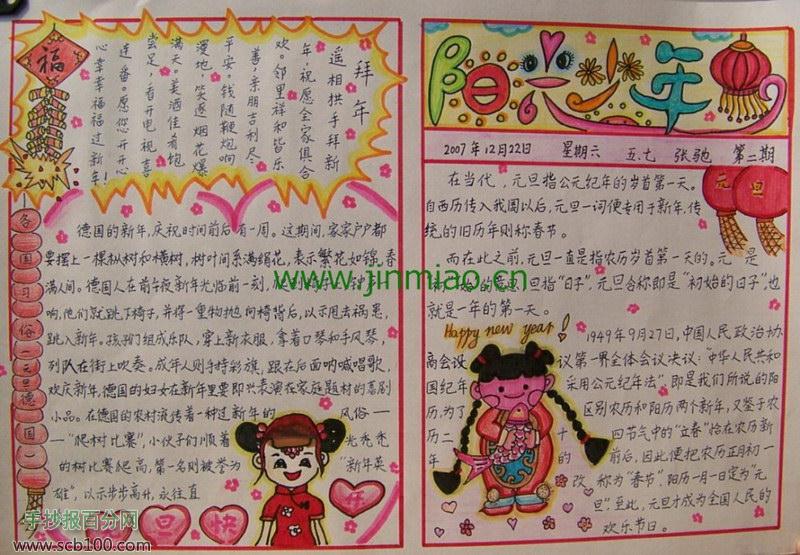 福
拜年
遥相拱手拜新
年,祝愿全家俱合
欢。邻里祥和皆乐
善,亲朋吉利尽
平安。钱随鞭炮响
漫地,笑逐烟花爆
满天。美酒佳肴饱
尝足,看开电视喜
连番。愿您开开心
心幸幸福福过新年!
各国习俗(元旦德国)
德国的新年,庆祝时间前后有一周。这期间,家家户户都
要摆上一棵枞树和横树,树叶间系满绢花,表示繁花如锦,春
满人间。德国人在前年夜新年光临前一刻,
响,他们就跳下椅子,并将一重物抛向椅背后,以示甩去祸患,
跳入新年。孩子们组成乐队,穿上新衣服,拿着口琴和手风琴,
列队在街上吹奏。成年人则手持彩旗,跟在后面呐喊唱歌,
欢庆新年,德国的妇女在新年里要即兴表演在家庭题材的喜剧
小品。在德国的农村流传着一种过新年的风俗一
一“爬树比赛”,小伙子们顺着光秃秃
的树比赛爬高,第一名则被誉为“新年英
雄”,以示步步高升,永往直
旦快
阳光少年
2007年12月22日 星期六 五.七 张驰 第二期
元旦
在当代,元旦指公元纪年的岁首第一天。
自西历传入我国以后,元旦一词便专用于新年,传
统的旧历年则称春节。
而在此之前,元旦一直是指农历岁首第一天的。元是
指“日子”,元旦合称即是“初始的日子”,也
就是一年的第一天。
Happy new year!
1949年9月27日,中国人民政治协
商会议第一界全体会议决议:“中华人民共和
国纪年采用公元纪年法”,即是我们所说的阳
历,为了区别农历和阳历两个新年,又鉴于农
历二十四节气中的“立春”恰在农历新
年的前后,因此便把农历正月初一
改称为“春节”,阳历一月一日定为“元
旦”,至此,元旦才成为全国人民的
欢乐节日。
www.jinmiao.cn
手抄报百分网
www.scb100.com